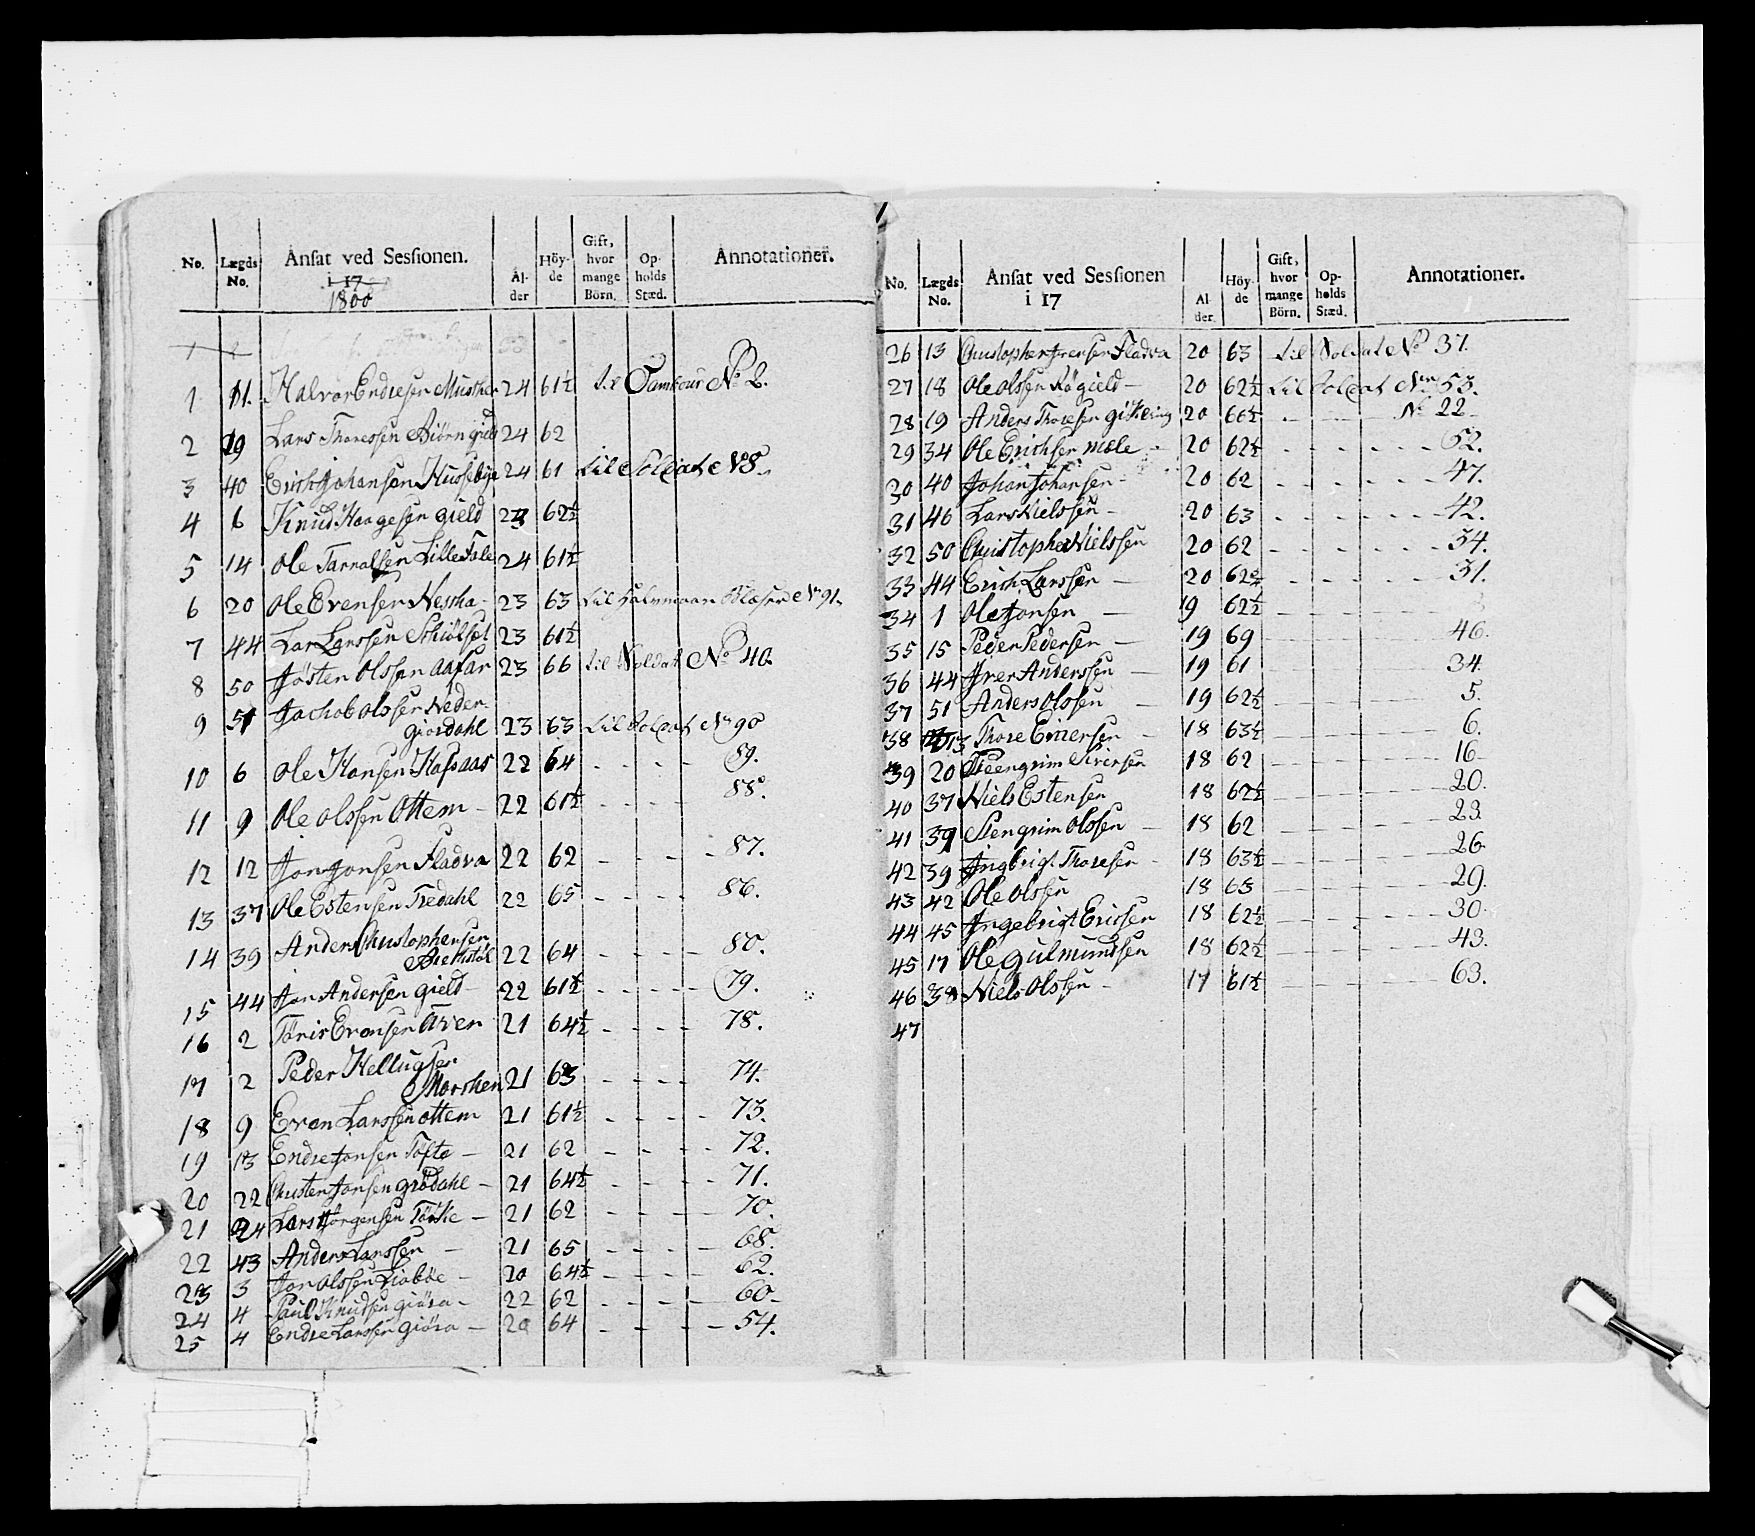 No. Lægds No. Ansat ved Sessionen. i 17 1800 Al-der Höy-de Gift, hvor mange Börn. Op-holds Stæd. Annotationer.
1 11. Halvor Endresen 24 61½ til Tambour No 2.
2 19 Lars Thoresen 24 62
3 40 Erich Johansen Hussebye 24 61 til Soldat No 8.
4 6 Knud Haagesen gield 62½
5 14 Ole Lille Fale 24 61½
6 20 Ole Evensen 23 63 til Halvmoon Blæser No 91.
7 44 Lar Larssen 23 61½
8 50 Jøsten Olssen aafar 23 66 til Soldat No 40.
9 51 Jachob olssen Neder
giørdahl 23 63 til Soldat No 90
10 6 Ole Hansen Hafsaas 22 64 - - - - 89.
11 9 Ole olssen Ottem - 22 61½ - - - - 88.
12 12 Jon Jonsen Fladva 22 62 - - - - 87.
13 37 Ole Estensen Tredahl 22 65 - - - - 86.
14 39 Anders Christophersen
22 64 - - - - 80.
15 44 Jon Andersen gield - 22 61½ - - - - 79.
16 2 Evensen 21 64½ - - - - 78.
17 2 Peder
21 63 - - - - 74.
18 9 Even Larssen ottem 21 61½ - - - - 73.
19 13 Endre Jonsen Tofte - 21 62 - - - - 72.
20 22 Christen Jonsen grødahl - 21 64½ - - - - 71.
21 24 Lars Jørgensen - 21 62 - - - - 70.
22 43 Anders Larssen - 21 65 - - - - 68.
23 3 Jon olssen - 20 64½ - - - - 62.
24 4 Paul Knudsen giøra - 22 62 - - - - 60.
25 4 Endre Larssen giøra - 20 64 - - - - 54.
No. Lægds No. Ansat ved Sessionen i 17 Al-der. Höy-de Gift, hvor mange Börn. Op-holds Stæd. Annotationer.
26 13 Christopher Iversen Fladva 20 63 til Soldat No 37.
27 18 Ole olssen - 20 62½ til Soldat No 53.
28 19 Anders Thoresen 20 60½ - - No 22
29 34 Ole Erichsen mæle - 20 62½ - - - - 52.
30 40 Johan Johansen - 20 62 - - - - 47.
31 46 Lars Nielssen - 20 63 - - - - 42.
32 50 Christopher Nielssen 20 62 - - - - 34.
33 44 Erich Larssen - 20 62½ - - - - 31.
34 1 Ole Jonsen - 19 62½ - - - -
35 15 Peder Pedersen - 19 69 - - - - 46.
36 44 Iver Anderssen - 19 61 - - - - 34.
37 51 Anders olssen - 19 62½ - - - - 5.
38 13 Thore Einersen - 18 63½ - - - - 6.
39 20 Steengrim Siversen 18 62 - - - - 16.
40 37 Niels Estensen 18 62½ - - - - 20.
41 39 Stengrim olssen - 18 62 - - - - 23.
42 39 Ingbrigt Thoresen - 18 63½ - - - - 26.
43 42 Ole olssen 18 63 - - - - 29.
44 45 Ingebrigt Ericsen 18 62½ - - - - 30.
45 17 Ole gulmundsen 18 62½ - - - - 43.
46 38 Niels Olssen - 17 61½ - - - - 63.
47